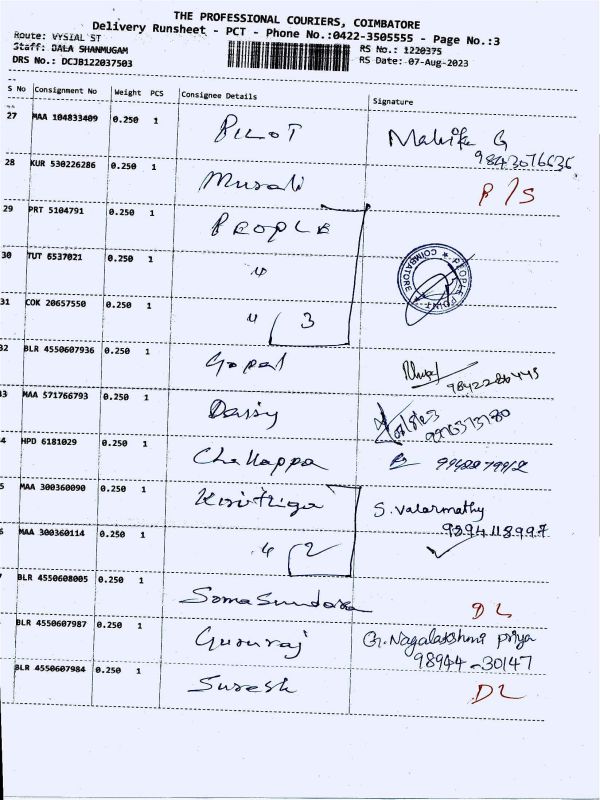 THE PROFESSIONAL COURIERS, COIMBATORE
Delivery Runsheet - PCT - Phone No.:0422-3505555 - Page No.:3
Route: VYSIAL ST
Staff: BALA SHANMUGAM
DRS No.: DCJB122037503
RS No.: 1220375
RS Date: 07-Aug-2023
S No Consignment No Weight PCS Consignee Details Signature
27 MAA 104833409 0.250 1 PILOT Malika G
9843076636
28 KUR 530226286 0.250 1 Murali P/S
29 PRT 5104791 0.250 1 PEOPLE
30 TUT 6537021 0.250 1 " PEOPLE POINT * COIMBATORE *
31 COK 20657550 0.250 1 " 3
32 BLR 4550607936 0.250 1 Gopal
33 MAA 571766793 0.250 1 Daisy
4 HPD 6181029 0.250 1 Challappa
5 MAA 300360090 0.250 1 Kiruthiga S. Valarmathy
9894118997
6 MAA 300360114 0.250 1 " 2
BLR 4550608005 0.250 1 Soma Sundara DL
BLR 4550607987 0.250 1 Gururaj G. Nagalakshmi priya
98944-30147
BLR 4550607984 0.250 1 Suresh DL